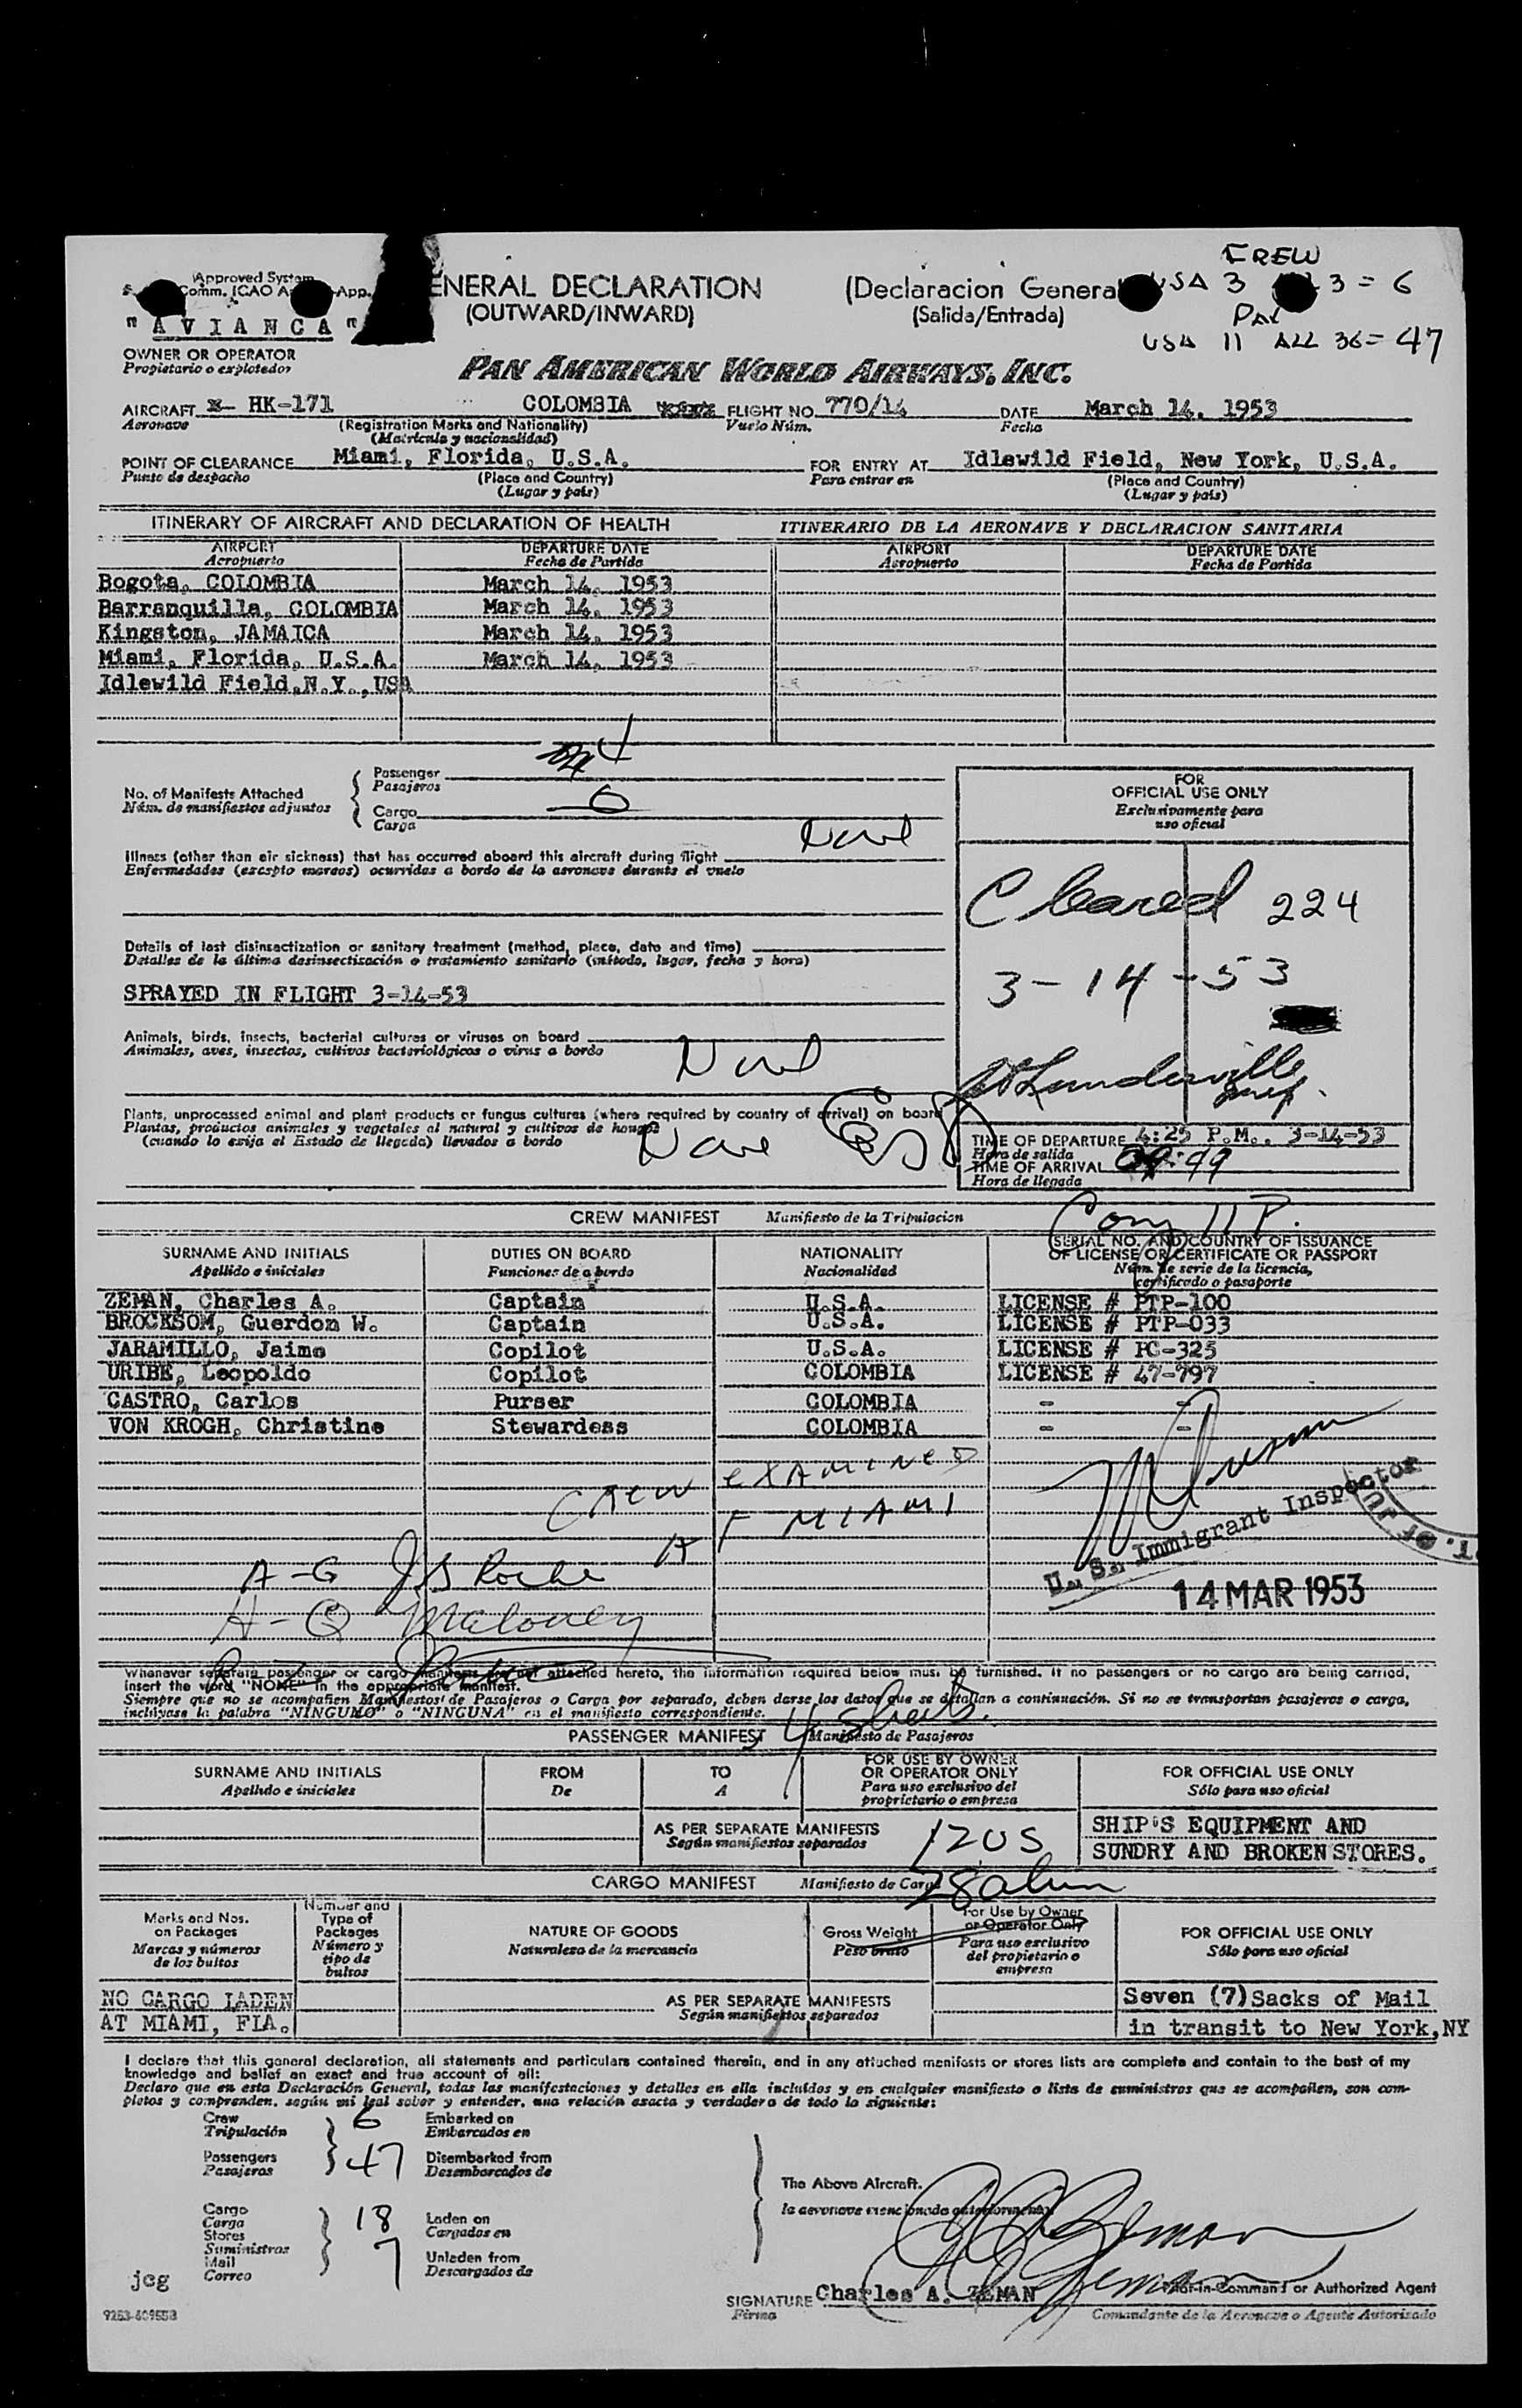 Approved System
Comm. ICAO App.
GENERAL DECLARATION
(OUTWARD/INWARD)
(Declaracion General)
(Salida/Entrada)
USA 3 3 = 6
USA 11 ALL 36 = 47
"AVIANCA"
OWNER OR OPERATOR
Propietario o explotador
PAN AMERICAN WORLD AIRWAYS, INC.
AIRCRAFT HK-171 COLOMBIA FLIGHT NO. 770/14 DATE March 14, 1953
Aeronave (Registration Marks and Nationality) Vuelo Núm. Fecha
(Matrícula y nacionalidad)
POINT OF CLEARANCE Miami, Florida, U.S.A. FOR ENTRY AT Idlewild Field, New York, U.S.A.
Punto de despacho (Place and Country) Para entrar en (Place and Country)
(Lugar y país) (Lugar y país)
ITINERARY OF AIRCRAFT AND DECLARATION OF HEALTH ITINERARIO DE LA AERONAVE Y DECLARACION SANITARIA
AIRPORT DEPARTURE DATE AIRPORT DEPARTURE DATE
Aeropuerto Fecha de Partida Aeropuerto Fecha de Partida
Bogota, COLOMBIA March 14, 1953
Barranquilla, COLOMBIA March 14, 1953
Kingston, JAMAICA March 14, 1953
Miami, Florida, U.S.A. March 14, 1953
Idlewild Field,N.Y.,USA
No. of Manifests Attached
Núm. de manifiestos adjuntos
Passenger 4
Pasajeros
Cargo 6
Carga
FOR
OFFICIAL USE ONLY
Exclusivamente para
uso oficial
Illness (other than air sickness) that has occurred aboard this aircraft during flight None
Enfermedades (excepto mareos) ocurridas a bordo de la aeronave durante el vuelo
Cleared 224
3-14-53
Details of last disinsectization or sanitary treatment (method, place, date and time)
Detalles de la última desinsectización o tratamiento sanitario (método, lugar, fecha y hora)
SPRAYED IN FLIGHT 3-14-53
Animals, birds, insects, bacterial cultures or viruses on board None
Animales, aves, insectos, cultivos bacteriológicos o virus a bordo
Plants, unprocessed animal and plant products or fungus cultures (where required by country of arrival) on board
Plantas, productos animales y vegetales al natural y cultivos de hongos
(cuando lo exija el Estado de llegada) llevados a bordo None
TIME OF DEPARTURE 4:25 P.M., 3-14-53
Hora de salida
TIME OF ARRIVAL
Hora de llegada
CREW MANIFEST Manifiesto de la Tripulacion
SURNAME AND INITIALS DUTIES ON BOARD NATIONALITY SERIAL NO. AND COUNTRY OF ISSUANCE
OF LICENSE OR CERTIFICATE OR PASSPORT
Apellido e iniciales Funciones de a bordo Nacionalidad Núm. de serie de la licencia,
certificado o pasaporte
ZEMAN, Charles A. Captain U.S.A. LICENSE # PTP-100
BROCKSOM, Guerdon W. Captain U.S.A. LICENSE # PTP-033
JARAMILLO, Jaime Copilot U.S.A. LICENSE # PC-325
URIBE, Leopoldo Copilot COLOMBIA LICENSE # 47-797
CASTRO, Carlos Purser COLOMBIA - -
VON KROGH, Christine Stewardess COLOMBIA - -
CREW EXAMINED
AT MIAMI
U. S. Immigrant Inspector
14 MAR 1953
A-G J.S Roche
H-Q Maloney
Whenever separate passenger or cargo manifests are not attached hereto, the information required below must be furnished. If no passengers or no cargo are being carried,
insert the word "NONE" in the appropriate manifest.
Siempre que no se acompañen Manifiestos de Pasajeros o Carga por separado, deben darse los datos que se detallan a continuación. Si no se transportan pasajeros o carga,
inclúyase la palabra "NINGUNO" o "NINGUNA" en el manifiesto correspondiente.
4 Sheets.
PASSENGER MANIFEST Manifiesto de Pasajeros
SURNAME AND INITIALS FROM TO FOR USE BY OWNER
OR OPERATOR ONLY FOR OFFICIAL USE ONLY
Apellido e iniciales De A Para uso exclusivo del
proprietario o empresa Sólo para uso oficial
AS PER SEPARATE MANIFESTS
Según manifiestos separados
12 US
28 alien
SHIP'S EQUIPMENT AND
SUNDRY AND BROKEN STORES.
CARGO MANIFEST Manifiesto de Carga
Marks and Nos.
on Packages
Marcas y números
de los bultos
Number and
Type of
Packages
Número y
tipo de
bultos
NATURE OF GOODS
Naturaleza de la mercancia
Gross Weight
Peso bruto
For Use by Owner
or Operator Only
Para uso exclusivo
del propietario o
empresa
FOR OFFICIAL USE ONLY
Sólo para uso oficial
NO CARGO LADEN
AT MIAMI, FLA.
AS PER SEPARATE MANIFESTS
Según manifiestos separados
Seven (7) Sacks of Mail
in transit to New York,NY
I declare that this general declaration, all statements and particulars contained therein, and in any attached manifests or stores lists are complete and contain to the best of my
knowledge and belief an exact and true account of all:
Declaro que en esta Declaración General, todas las manifestaciones y detalles en ella incluídos y en cualquier manifiesto o lista de suministros que se acompañen, son com-
pletos y comprenden, según mi leal saber y entender, una relación exacta y verdadera de todo lo siguiente:
Crew 6 Embarked on
Tripulación Embarcados en
Passengers 47 Disembarked from
Pasajeros Desembarcados de
The Above Aircraft.
la aeronave mencionada anteriormente
Cargo
Carga 18 Laden on
Stores Cargados en
Suministros
Mail 7 Unladen from
Correo Descargados de
jcg
SIGNATURE Charles A. ZEMAN Pilot-in-Command or Authorized Agent
Firma Comandante de la Aeronave o Agente Autorizado
9253-609558